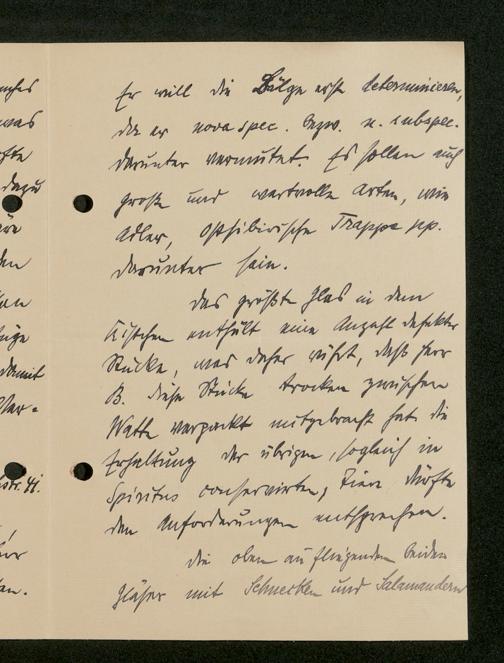 Er will die Bälge erst determinieren,
da er nova spec. bezw. n. subspec.
darunter vermutet. Es sollen auch
große und wertvolle Arten, wie
Adler, Ostsibirische Trappe pp.
darunter sein.
Das größte Glas in dem
Kistchen enthält eine Anzahl defekter
Stücke, was daher rührt, daß Herr
B. diese Stücke trocken zwischen
Watte verpackt mitgebracht hat. Die
Erhaltung der übrigen, sogleich in
Spiritus conservirten, Tiere dürfte
den Anforderungen entsprechen.
Die oben aufliegenden beiden
Gläser mit Schnecken und Salamandern